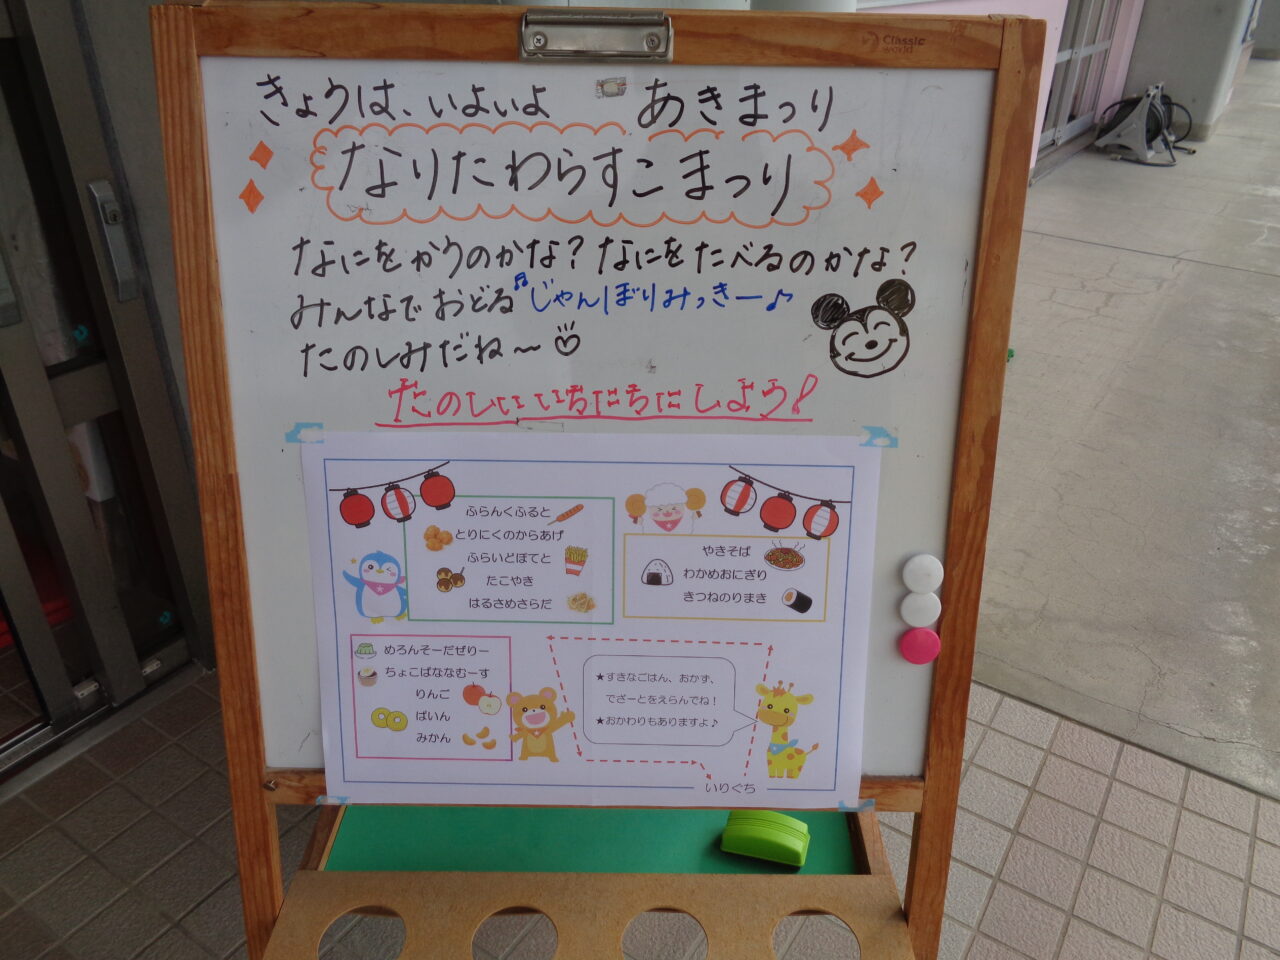 Classic world
きょうは、いよいよ あきまつり
なりたわらすこまつり
なにをかうのかな？なにをたべるのかな？
みんなでおどる♫じゃんぼりみっきー♪
たのしみだね〜♡
たのしいいちにちにしよう！
ふらんくふると
とりにくのからあげ
ふらいどぽてと
たこやき
はるさめさらだ
やきそば
わかめおにぎり
きつねのりまき
めろんそーだぜりー
ちょこばななむーす
りんご
ぱいん
みかん
★すきなごはん、おかず、
でざーとをえらんでね！
★おかわりもありますよ♪
いりぐち